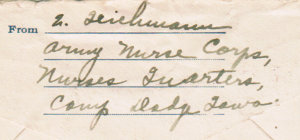 From Z. Teichmann
Army Nurse Corps,
Nurses Quarters,
Camp Dodge Iowa.